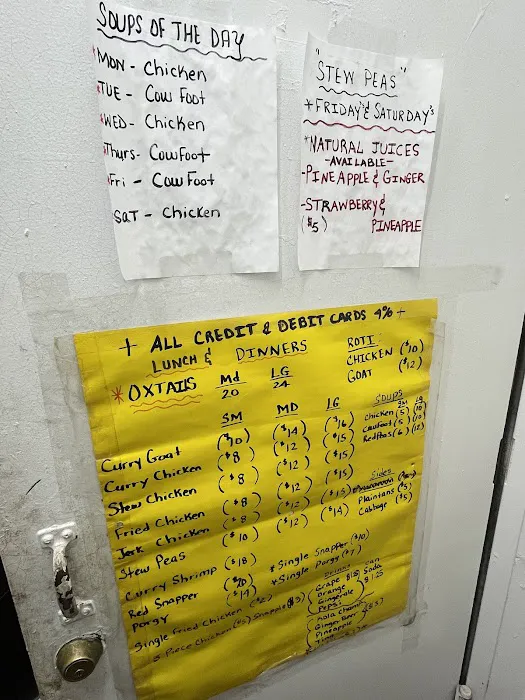 SOUPS OF THE DAY
*MON - Chicken
*TUE - Cow Foot
*WED - Chicken
*Thurs - Cow Foot
*Fri - Cow Foot
SAT - Chicken
"STEW PEAS"
*FRIDAY'S & SATURDAY'S
*NATURAL JUICES
-AVAILABLE-
-PINEAPPLE & GINGER
-STRAWBERRY &
($5) PINEAPPLE
+ ALL CREDIT & DEBIT CARDS 4% +
LUNCH & DINNERS
*OXTAILS Md 20 LG 24
ROTI
CHICKEN ($10)
GOAT ($12)
SM MD LG
Curry Goat ($10) ($14) ($16)
Curry Chicken ($8) ($12) ($15)
Stew Chicken ($8) ($12) ($15)
Fried Chicken ($8) ($12) ($15)
Jerk Chicken ($8) ($12) ($15)
Stew Peas ($10) ($12) ($14)
Curry Shrimp ($18)
Red Snapper ($20)
Porgy $14
Single Fried Chicken ($2)
3 Piece Chicken ($5) Snapple ($3)
*Single Snapper ($10)
*Single Porgy ($7)
SOUPS
SM LG
Chicken (5) (10)
Cowfoot (5) (10)
Red Peas (6) (12)
Sides
Plantains ($5)
Cabbage ($5)
Drinks
Can Soda $1.25
Grape
Orange
Gingerale
Pepsi
Kola Champ
Ginger Beer
Pineapple